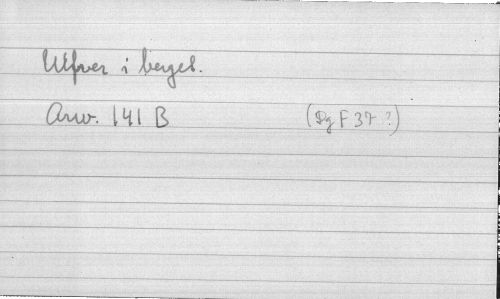 Ulfver i berget.
Arw. 141 B (Dg F 37 ?)